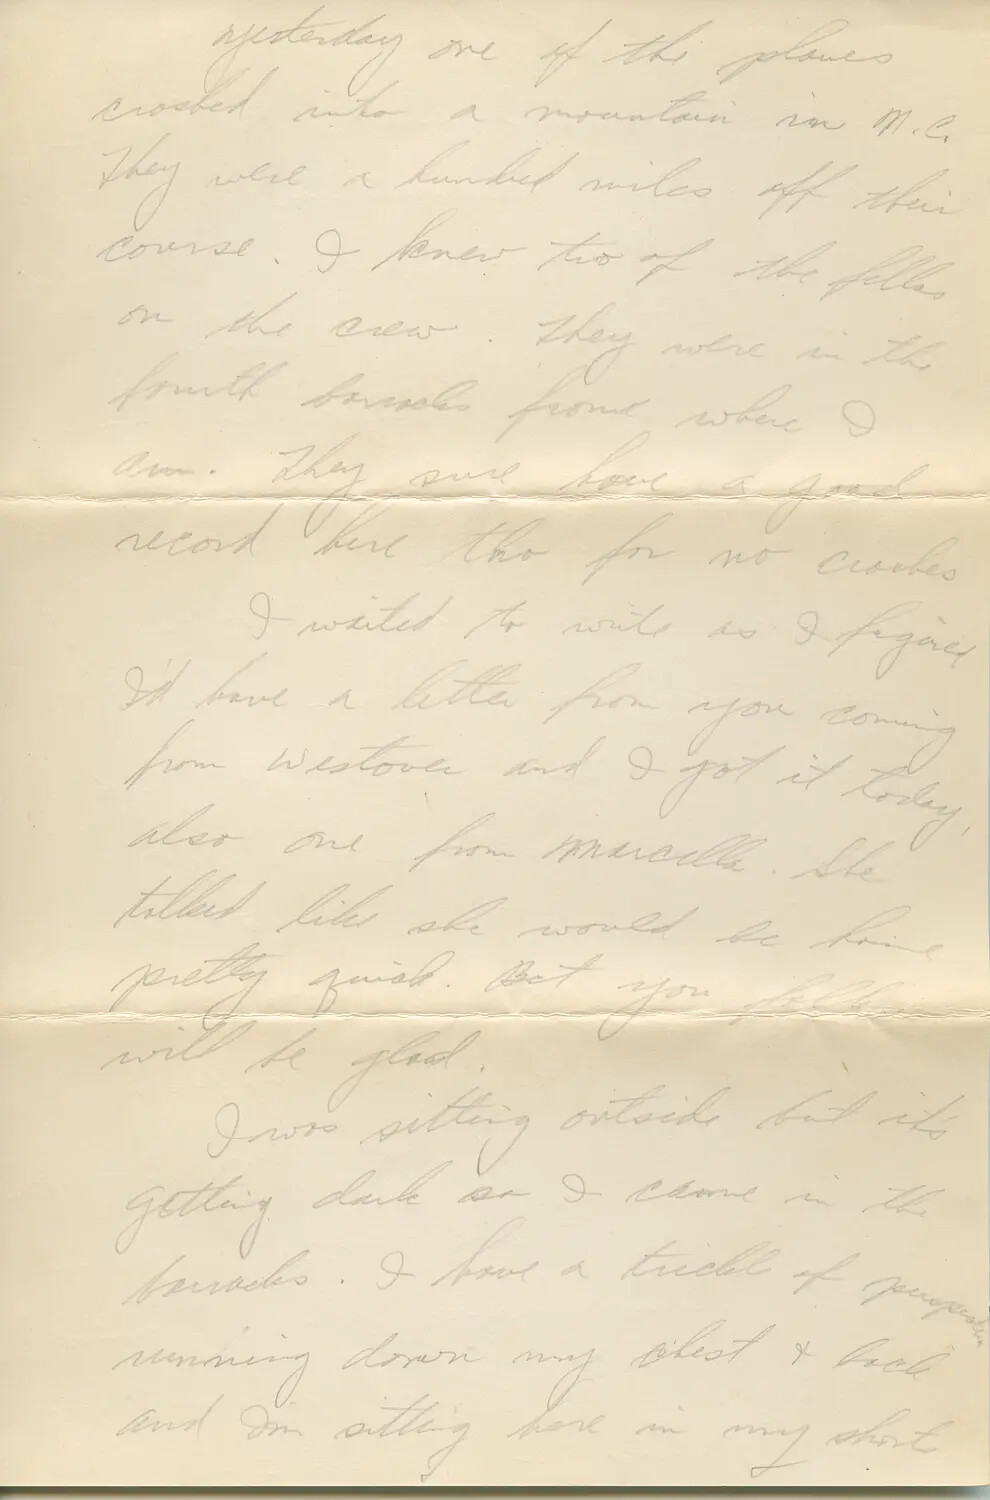 yesterday one of the planes
crashed into a mountain in N.C.
They were a hundred miles off their
course. I knew two of the fellas
on the crew. They were in the
fourth barracks from where I
am. They sure have a good
record here tho for no crashes
I waited to write as I figured
I'd have a letter from you coming
from Westover and I got it today,
also one from Marcella. She
talked like she would be home
pretty quick. Bet you folks
will be glad.
I was sitting outside but it's
getting dark so I came in the
barracks. I have a trickle of
running down my chest & back
and I'm sitting here in my shorts